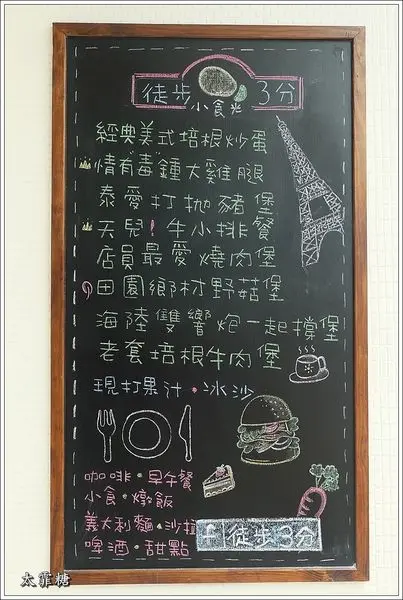 徒步 小食光 3分
經典美式培根炒蛋
情有毒鍾大雞腿
泰愛打拋豬堡
天兒!牛小排餐
店員最愛燒肉堡
田園鄉村野菇堡
海陸雙響炮一起撐堡
老套培根牛肉堡
現打果汁•冰沙
咖啡•早午餐
小食•燉飯
義大利麵•沙拉
啤酒•甜點
徒步3分
太霏糖